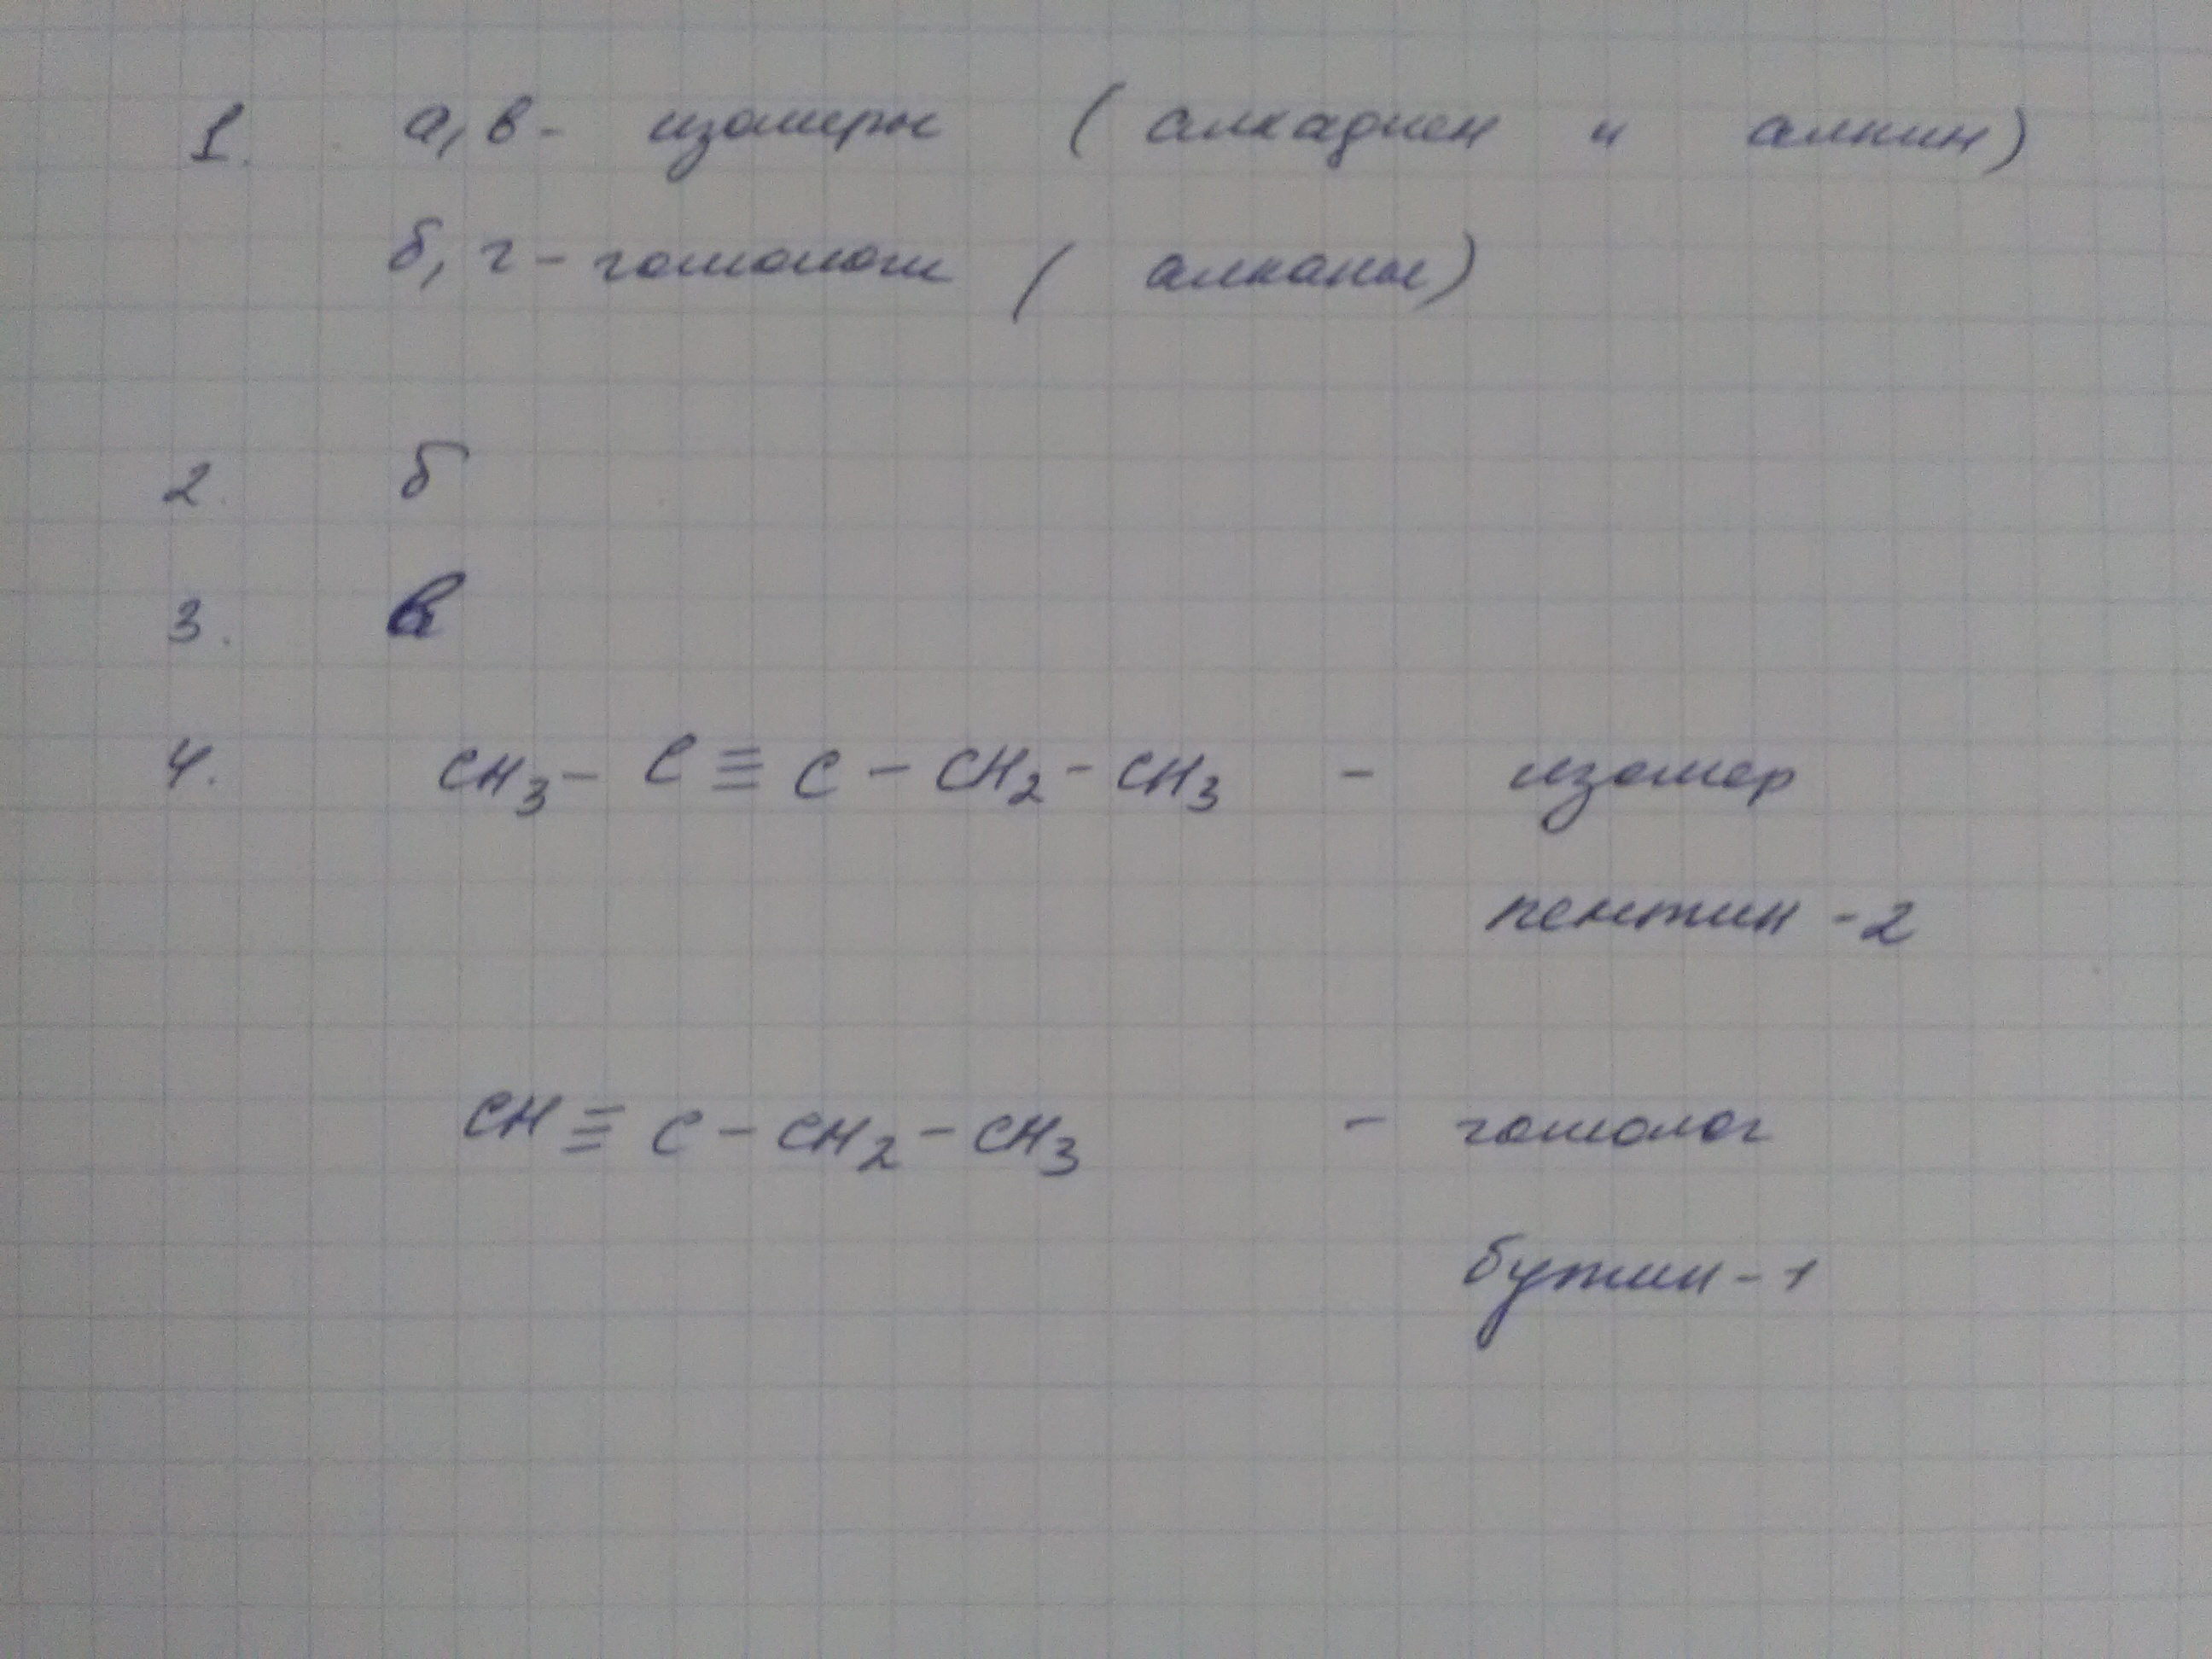 1. а, в - изомеры ( алкадиен и алкин)
б, г - гомологи ( алканы)
2. б
3. в
4. CH₃ - C ≡ C - CH₂ - CH₃ - изомер
пентин - 2
CH ≡ C - CH₂ - CH₃ - гомолог
бутин - 1